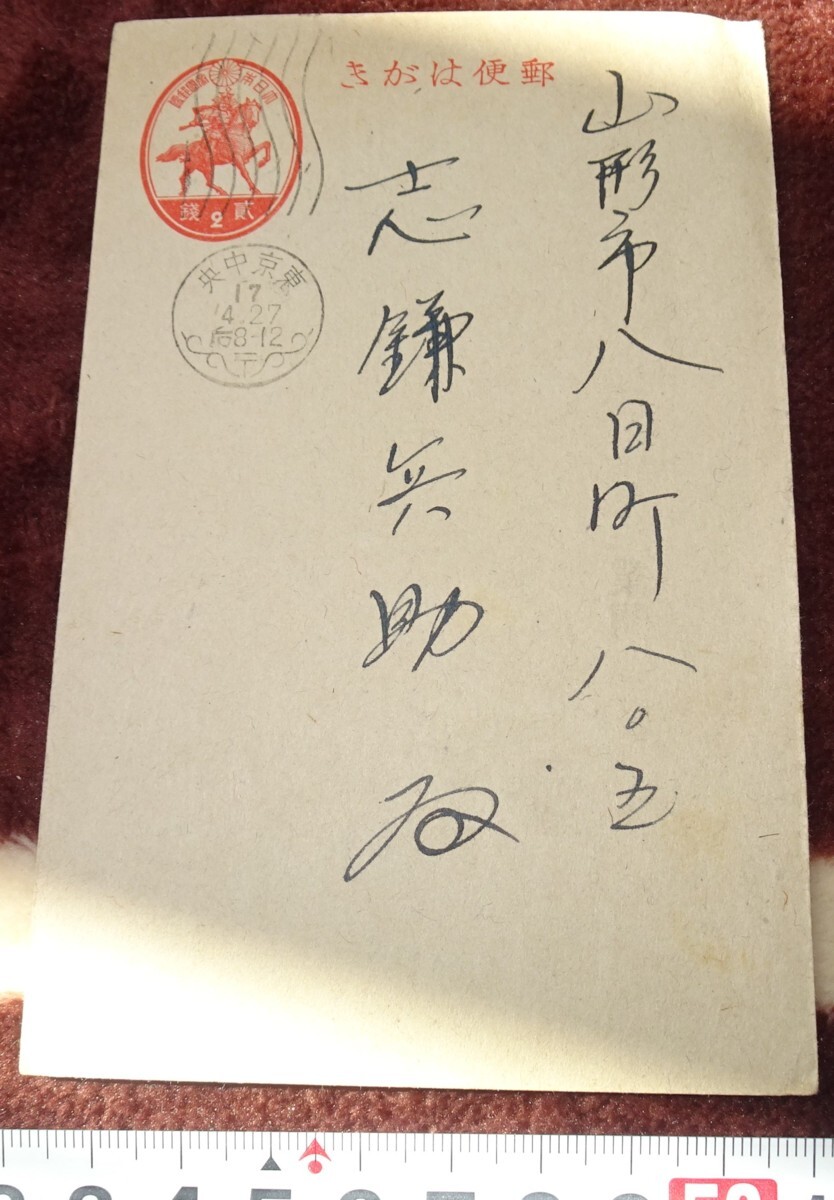 郵便はがき
大日本帝國郵便
貳 2 錢
東京中央
17
4.27
后8-12
山形市八日町八〇五
志鎌兵助殿
50